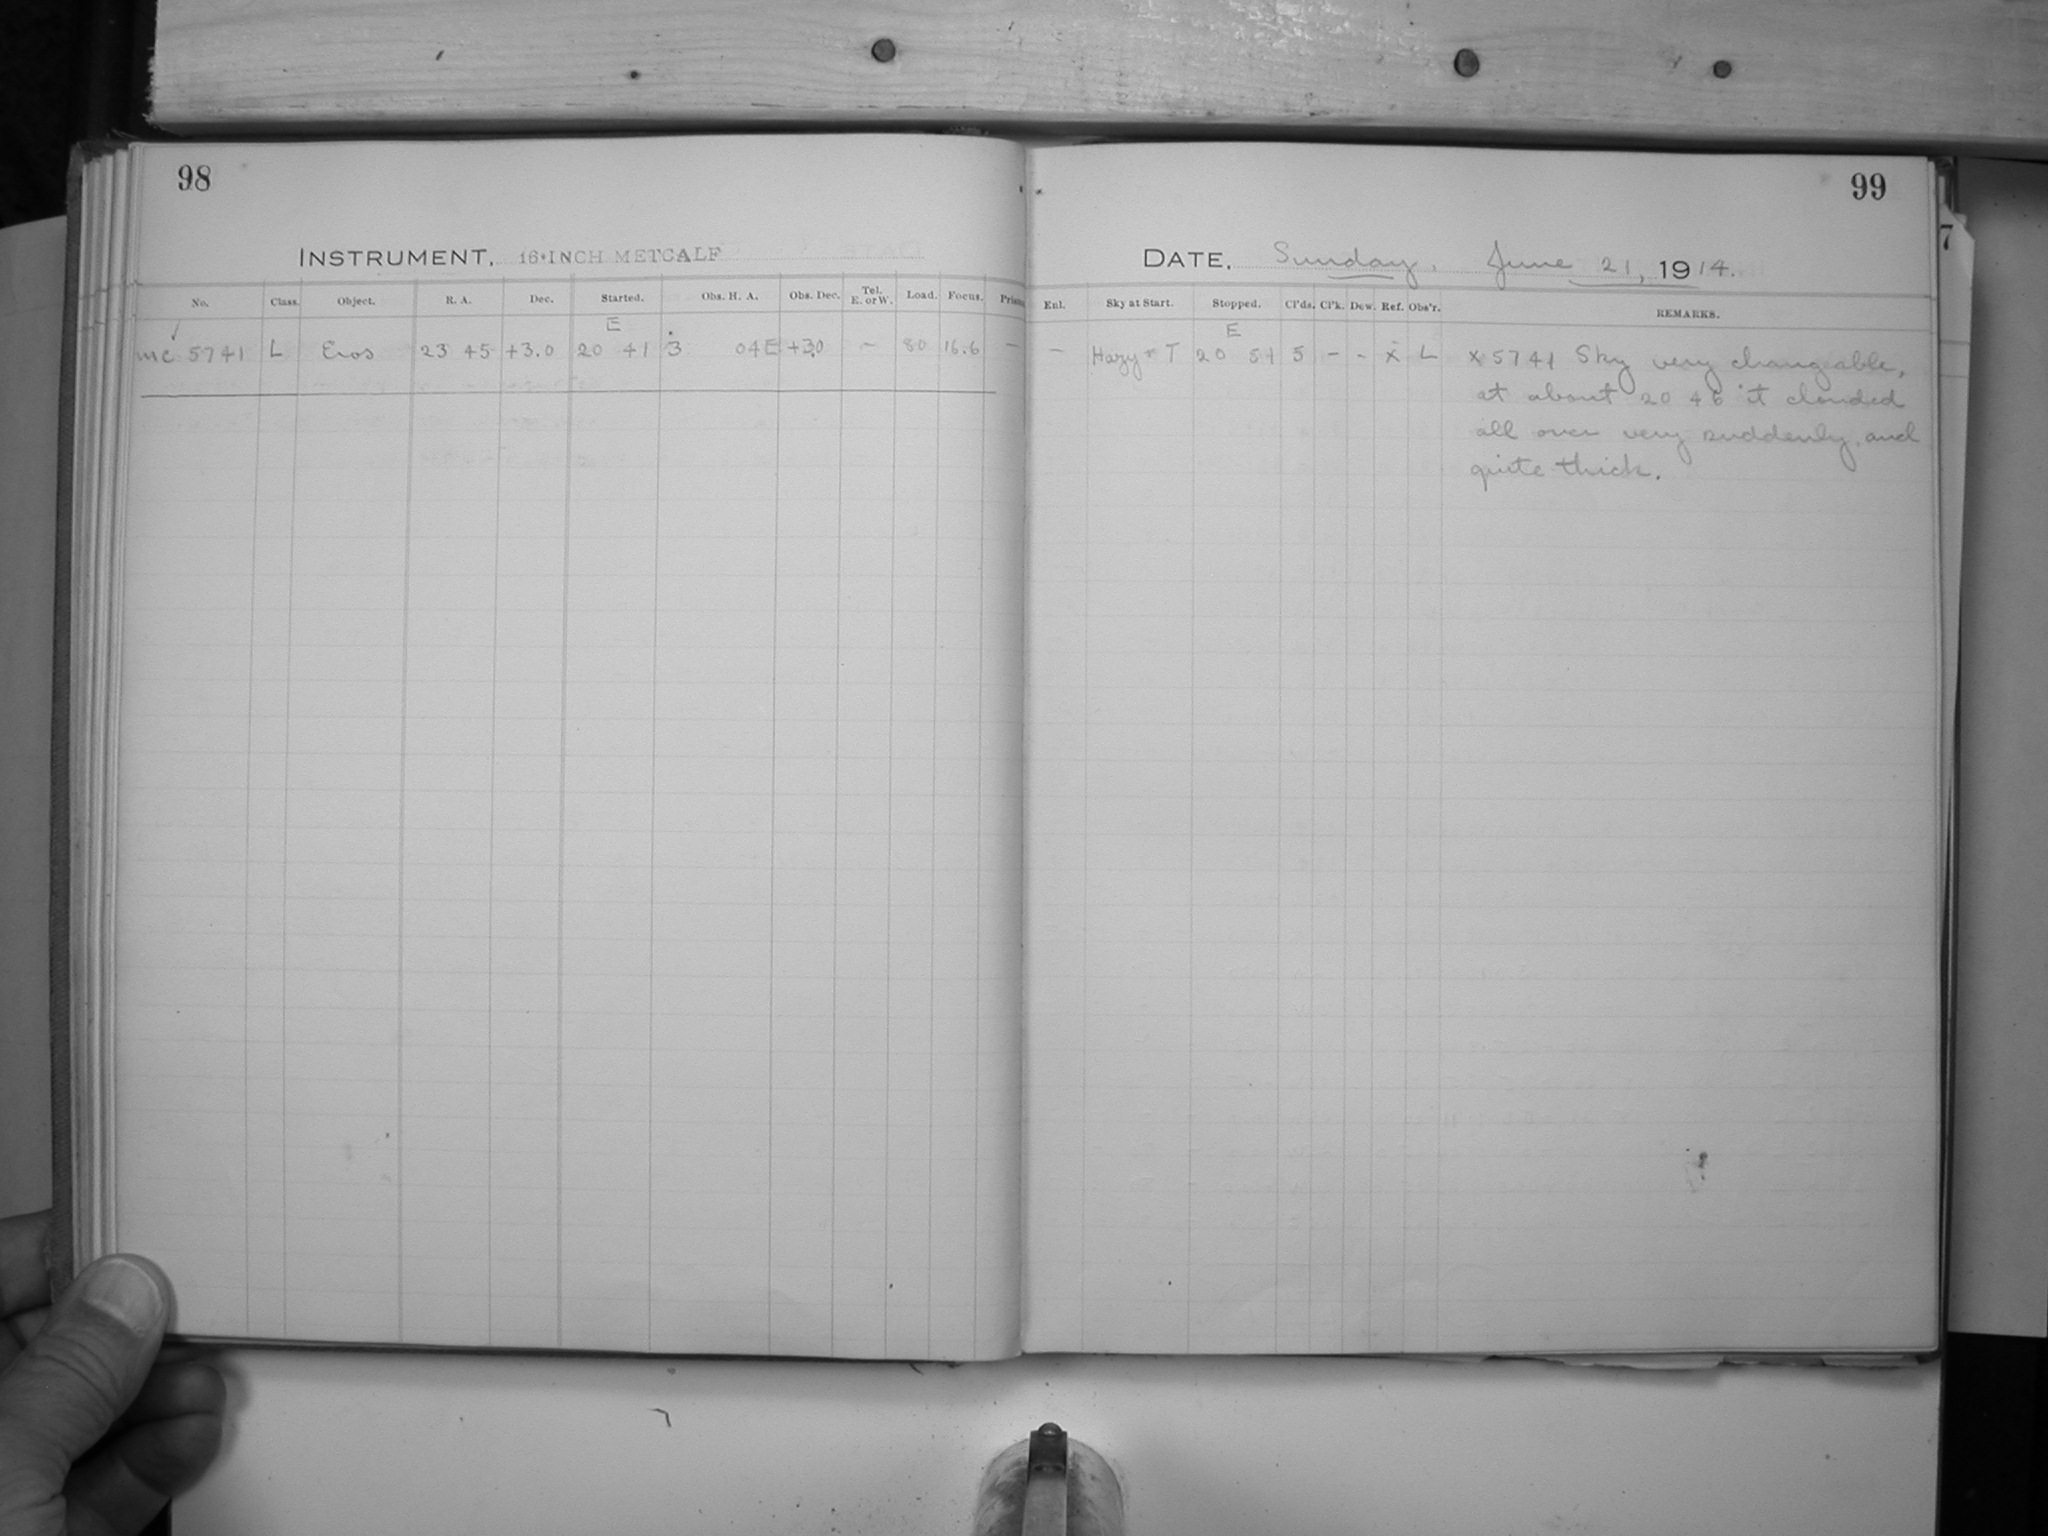 98
INSTRUMENT. 16-INCH METCALF
No. Class. Object. R. A. Dec. Started. Obs. H. A. Obs. Dec. Tel. E. or W. Load. Focus. Prism
E
mc 5741 L Eros 23 45 +3.0 20 41 3 04E +3.0 - 80 16.6 -
99
DATE. Sunday, June 21, 1914.
Enl. Sky at Start. Stopped. Cl'ds. Cl'k. Dew. Ref. Obs'r. REMARKS.
E
- Hazy + T 20 51 5 - - x L x 5741 Sky very changeable,
at about 20 46 it clouded
all over very suddenly, and
quite thick.
7